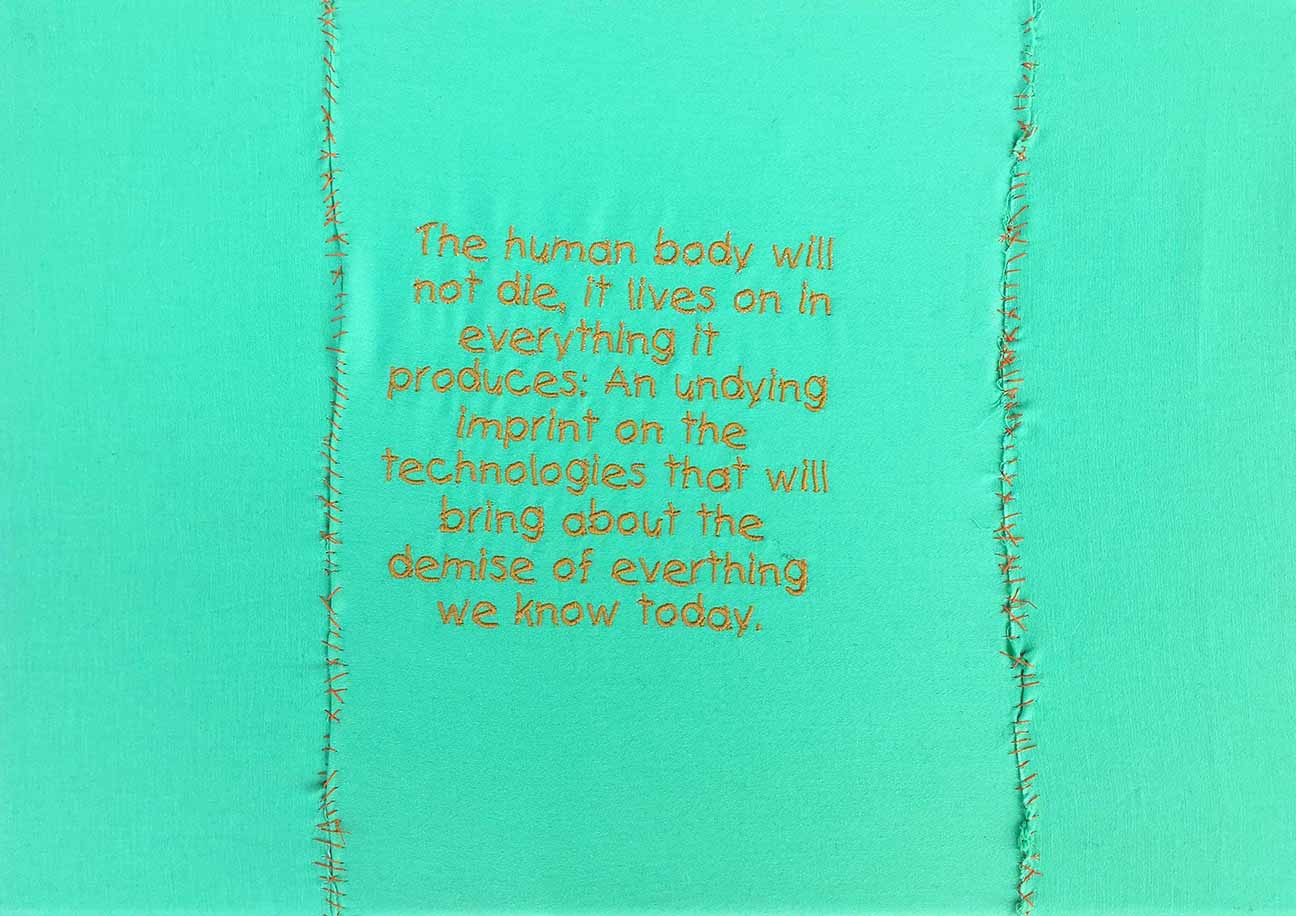 The human body will
not die, it lives on in
everything it
produces: An undying
imprint on the
technologies that will
bring about the
demise of everthing
we know today.